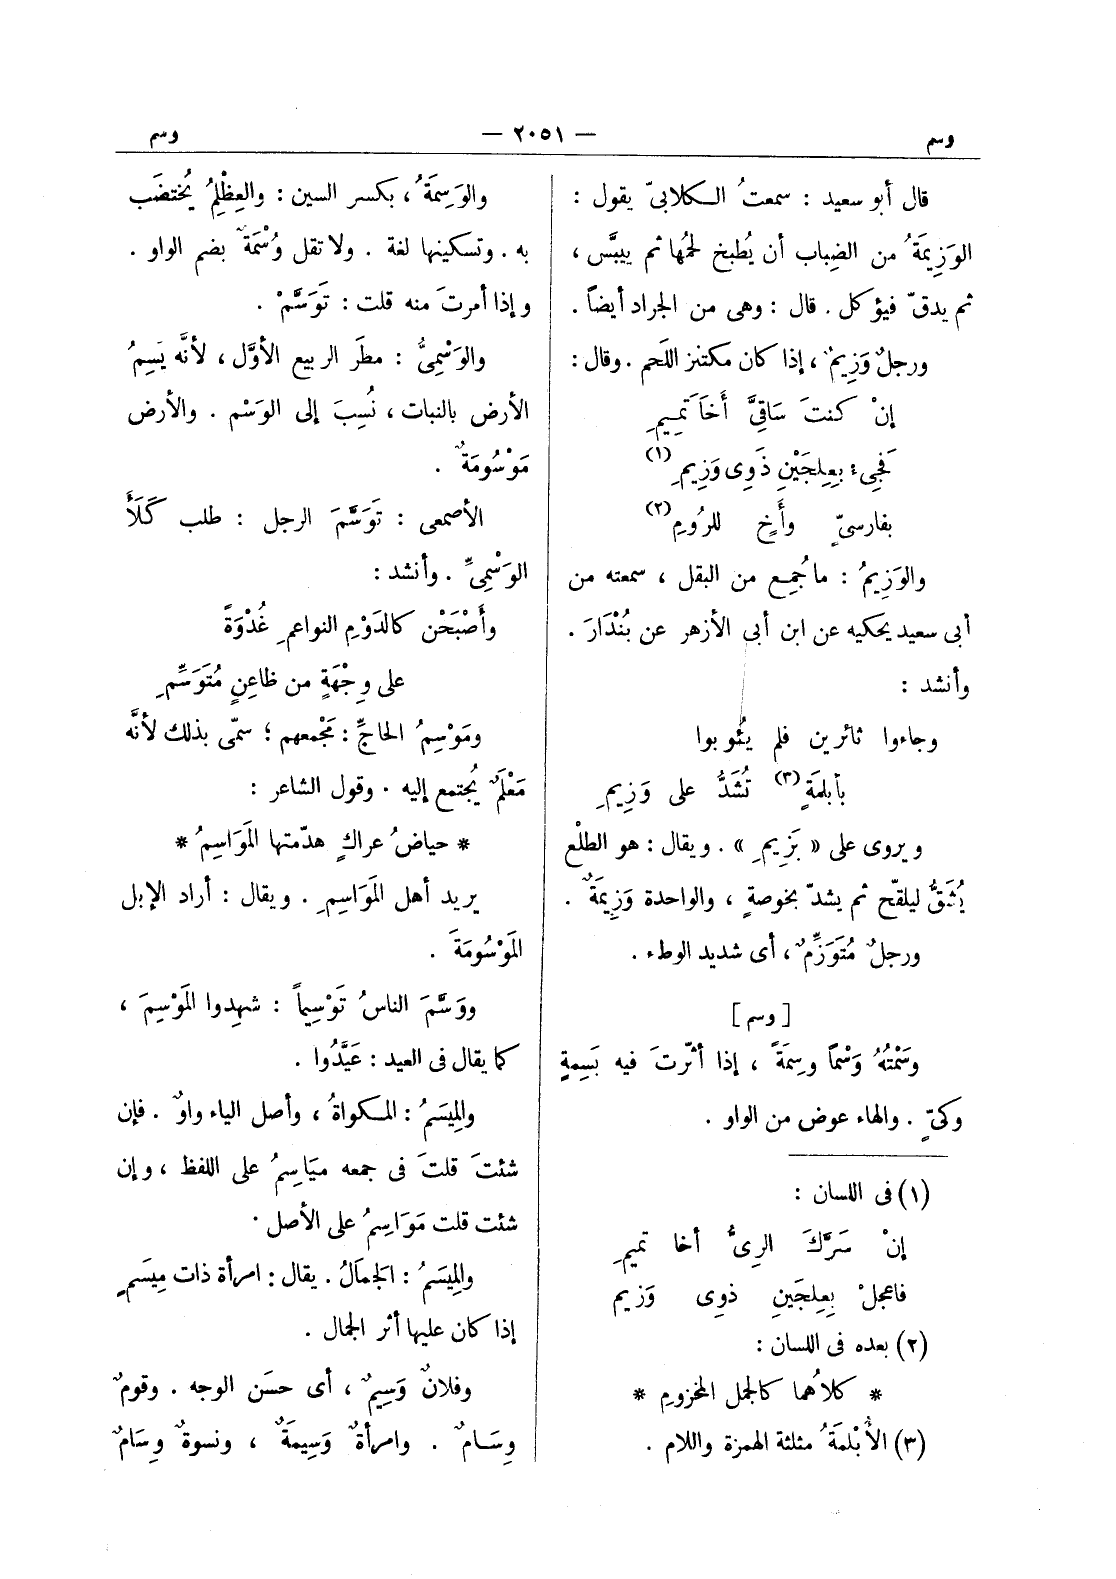 وسم — ٢٠٥١ — وسم
قال أبو سعيد : سمعتُ الكلابىّ يقول :
الوَزِيمَةُ من الضِباب أن يُطبخ لحمُها ثم ييبَّس ،
ثم يدقّ فيؤكل . قال : وهى من الجراد أيضاً .
ورجلٌ وَزِيمٌ ، إذا كان مكتنز اللَحم . وقال :
إنْ كنتَ سَاقِىَّ أَخَا تَمِيمِ
فَجِىء بِعِلجَيْنِ ذَوِى وَزِيمِ (١)
بفارسىٍّ وأَخٍ للرُومِ (٢)
والوَزِيمُ : ما جُمِع من البقل ، سمعته من
أبى سعيد يحكيه عن ابن أبى الأزهر عن بُنْدَارَ .
وأنشد :
وجاءوا ثائرين فلم يَئُوبوا
بأبلمَةٍ (٣) تُشَدُّ على وَزِيمِ
ويروى على « بَزِيمِ » . ويقال : هو الطلْع
يُشَقُّ ليلقّح ثم يشدّ بخوصةٍ ، والواحدة وَزِيمَةٌ .
ورجلٌ مُتَوَزِّمٌ ، أى شديد الوطء .
[ وسم ]
وسَمْتُهُ وَسْمًا وسِمَةً ، إذا أثّرتَ فيه بَسِمةٍ
وكىٍّ . والهاء عوض من الواو .
(١) فى اللسان :
إنْ سَرَّكَ الرِىُّ أخا تميمِ
فاعجلْ بِعِلجَينِ ذوِى وَزيم
(٢) بعده فى اللسان :
* كلاُهما كالجمل المخزومِ *
(٣) الأُبْلمَةُ مثلثة الهمزة واللام .
والوَسِمَةُ ، بكسر السين : والعِظْلِمُ يُختضَب
به . وتسكينها لغة . ولا تقل وُسْمَةٌ بضم الواو .
وإذا أمرتَ منه قلت : تَوَسَّمْ .
والوَسْمِىُّ : مطَر الربيع الأوَّل ، لأنَّه يَسِمُ
الأرض بالنبات ، نُسِبَ إلى الوَسْم . والأرض
مَوْسُومَةٌ .
الأصمعى : تَوَسَّمَ الرجل : طلب كَلَأَ
الوَسْمِىِّ . وأنشد :
وأَصْبَحْن كالدَوْمِ النواعمِ غُدْوَةً
على وِجْهَةٍ من ظاعِنٍ مُتَوَسِّمِ
ومَوْسِمُ الحاجِّ : مَجْمعهم ؛ سمّى بذلك لأنَّه
مَعْلَمٌ يُجتمع إليه . وقول الشاعر :
* حياضُ عراكٍ هدّمتها المَوَاسِمُ *
يريد أهل المَوَاسِمِ . ويقال : أراد الإبل
المَوْسُومَةَ .
ووَسَّمَ الناسُ تَوْسِيماً : شهِدوا المَوْسِمَ ،
كما يقال فى العيد : عَيَّدُوا .
والمِيسَمُ : المكواةُ ، وأصل الياء واوٌ . فإن
شئتَ قلتَ فى جمعه مَيَاسِمُ على اللفظ ، وإن
شئت قلت مَوَاسِمُ على الأصل .
والمِيسَمُ : الجَمالُ . يقال : امرأة ذات مِيسَمٍ
إذا كان عليها أثر الجمال .
وفلانٌ وَسِيمٌ ، أى حسَن الوجه . وقومٌ
وِسَامٌ . وامرأةٌ وَسِيمَةٌ ، ونسوةٌ وِسَامٌ